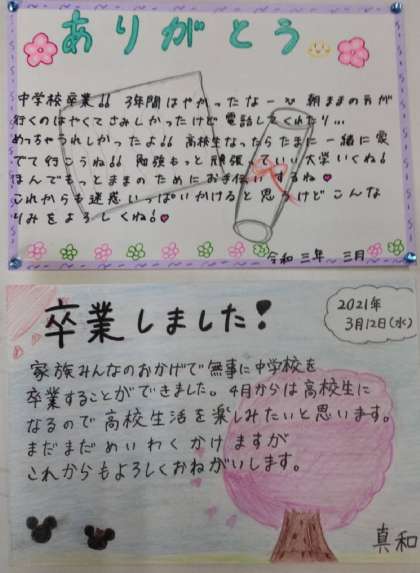 ありがとう
中学校卒業!! 3年間はやかったなー 朝ままの方が
行くのはやくてさみしかったけど電話してくれたり...
めっちゃうれしかったよ!! 高校生なったらたまに一緒に家
でて行こうね!! 勉強もっと頑張っていい大学いくね!
ほんでもっとままのためにお手伝いするね♥
これからも迷惑いっぱいかけると思うけどこんな
りみをよろしくね!♥
令和三年 三月
卒業しました!
2021年
3月12日(水)
家族みんなのおかげで無事に中学校を
卒業することができました。4月からは高校生に
なるので高校生活を楽しみたいと思います。
まだまだめいわくかけますが
これからもよろしくおねがいします。
真和